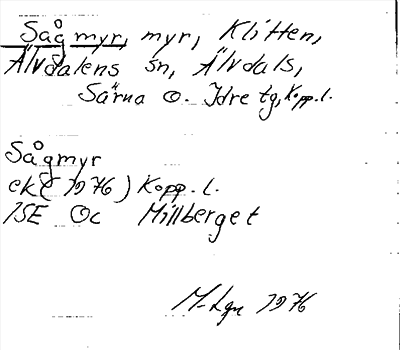 Sågmyr, myr, Klitten,
Älvdalens sn, Älvdals,
Särna o. Idre tg, Kopp. l.
Sågmyr
ek (1976) Kopp. l.
ISE Oc Millberget
M-Lgn 1976